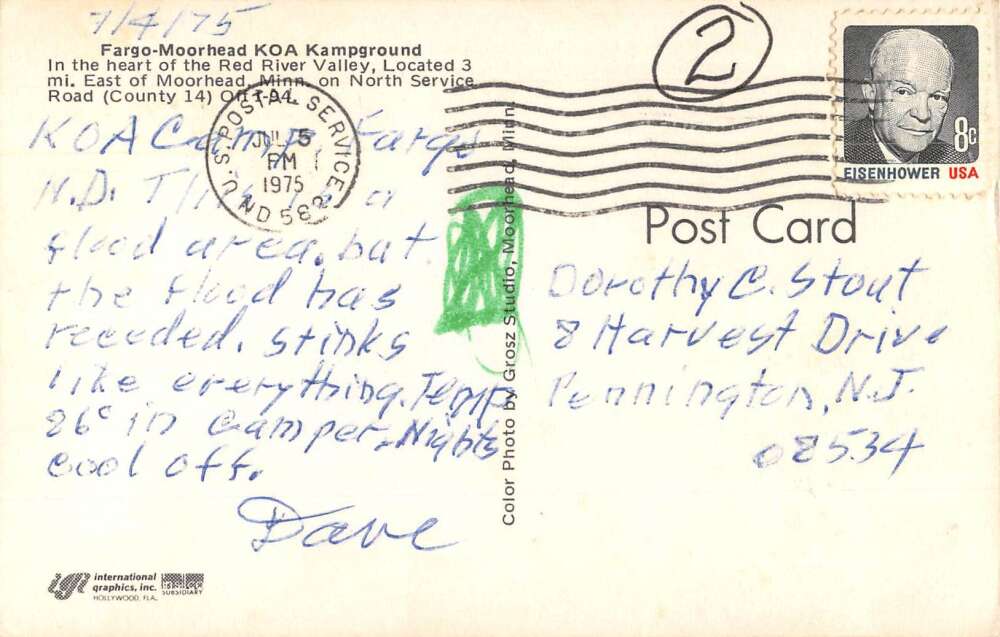 7/4/75
Fargo-Moorhead KOA Kampground
In the heart of the Red River Valley, Located 3
mi. East of Moorhead, Minn. on North Service
Road (County 14) Off I-94.
KOA Camp, Fargo
N.D. This is a
flood area, but
the flood has
receded. Stinks
like everything. Temp
86° in Camper. Nights
cool off.
Dave
international
graphics, inc.
HOLLYWOOD, FLA.
SUBSIDIARY
Color Photo by Grosz Studio, Moorhead, Minn.
U.S. POSTAL SERVICE
JUL 5
PM
1975
ND 582
2
8c
EISENHOWER USA
Post Card
Dorothy C. Stout
8 Harvest Drive
Pennington, N.J.
08534